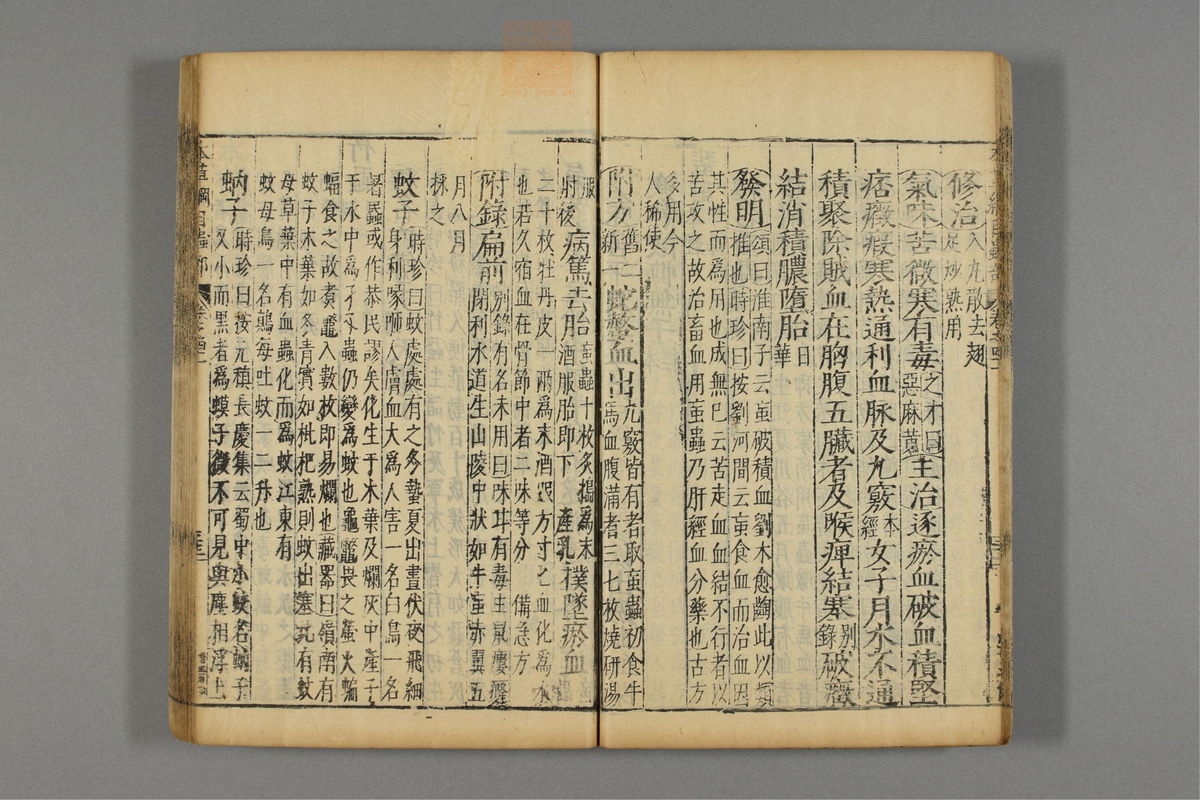 修治入丸散去翅足炒熟用
氣味苦微寒有毒之才曰惡麻黃主治逐瘀血破血積堅
痞癥瘕寒熱通利血脉及九竅本經女子月水不通
積聚除賊血在胸腹五臟者及喉痺結塞別錄破癥
結消積膿墮胎日華
發明頌曰淮南子云䖟破積血劉木愈齲此以類
推也時珍曰按劉河間云䖟食血而治血因
其性而爲用也成無已云苦走血血結不行者以
苦攻之故治畜血用䖟蟲乃肝經血分藥也古方
多用今
人稀使
附方舊二新一蛇螫血出九竅皆有者取䖟蟲初食牛
馬血腹滿者三七枚燒研湯
服
肘後病篤去胎䖟蟲十枚炙搗爲末酒服胎即下產乳撲墜瘀血䖟蟲
二十枚牡丹皮一兩爲末酒服方寸匕血化爲水
也若久宿血在骨節中者二味等分備急方
附錄扁前別錄有名未用曰味甘有毒主鼠瘻癃
閉利水道生山陵中狀如牛䖟赤翼五
月八月
採之
蚊子時珍曰蚊處處有之冬蟄夏出晝伏夜飛細
身利喙咂人膚血大爲人害一名白鳥一名
暑䘇或作黍民謬矣化生于木葉及爛灰中產子
于水中爲孑孓蟲仍變爲蚊也龜鼈畏之螢火蝙
蝠食之故煮鼈入數枚即易爛也藏器曰嶺南有
蚊子木葉如冬青實如枇杷熟則蚊出塞北有蚊
母草葉中有血蟲化而爲蚊江東有
蚊母鳥一名鷏每吐蚊一二升也
蚋子時珍曰按元稹長慶集云蜀中小蚊名蚋子
又小而黑者爲蟆子微不可見與塵相浮上